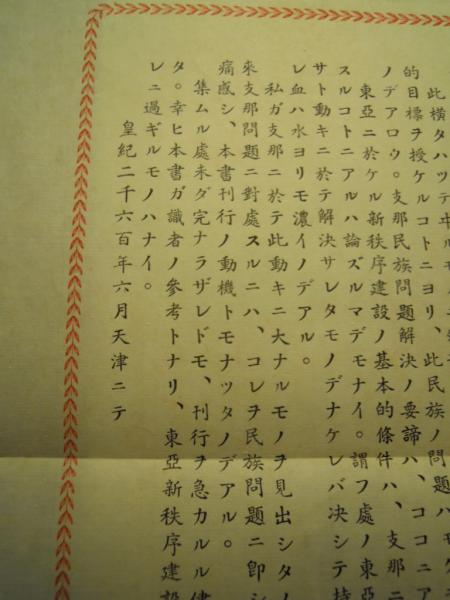 此橫タハツテヰルモノ
的目標ヲ授ケルコトニヨリ、此民族ノ問題ハ
ノデアロウ。支那民族問題解決ノ要諦ハ、ココニア
東亞ニ於ケル新秩序建設ノ基本的條件ハ、支那ニ
スルコトニアルハ論ズルマデモナイ。謂フ處ノ東亞
サト動キニ於テ解決サレタモノデナケレバ決シテ持
レ血ハ水ヨリモ濃イノデアル。
私ガ支那ニ於テ此動キニ大ナルモノヲ見出シタノ
來支那問題ニ對處スルニハ、コレヲ民族問題ニ卽シ
痛感シ、本書刊行ノ動機トモナツタノデアル。
集ムル處未ダ完ナラザレドモ、刊行ヲ急カルル儘
タ。幸ヒ本書ガ識者ノ參考トナリ、東亞新秩序建設
レニ過ギルモノハナイ。
皇紀二千六百年六月天津ニテ